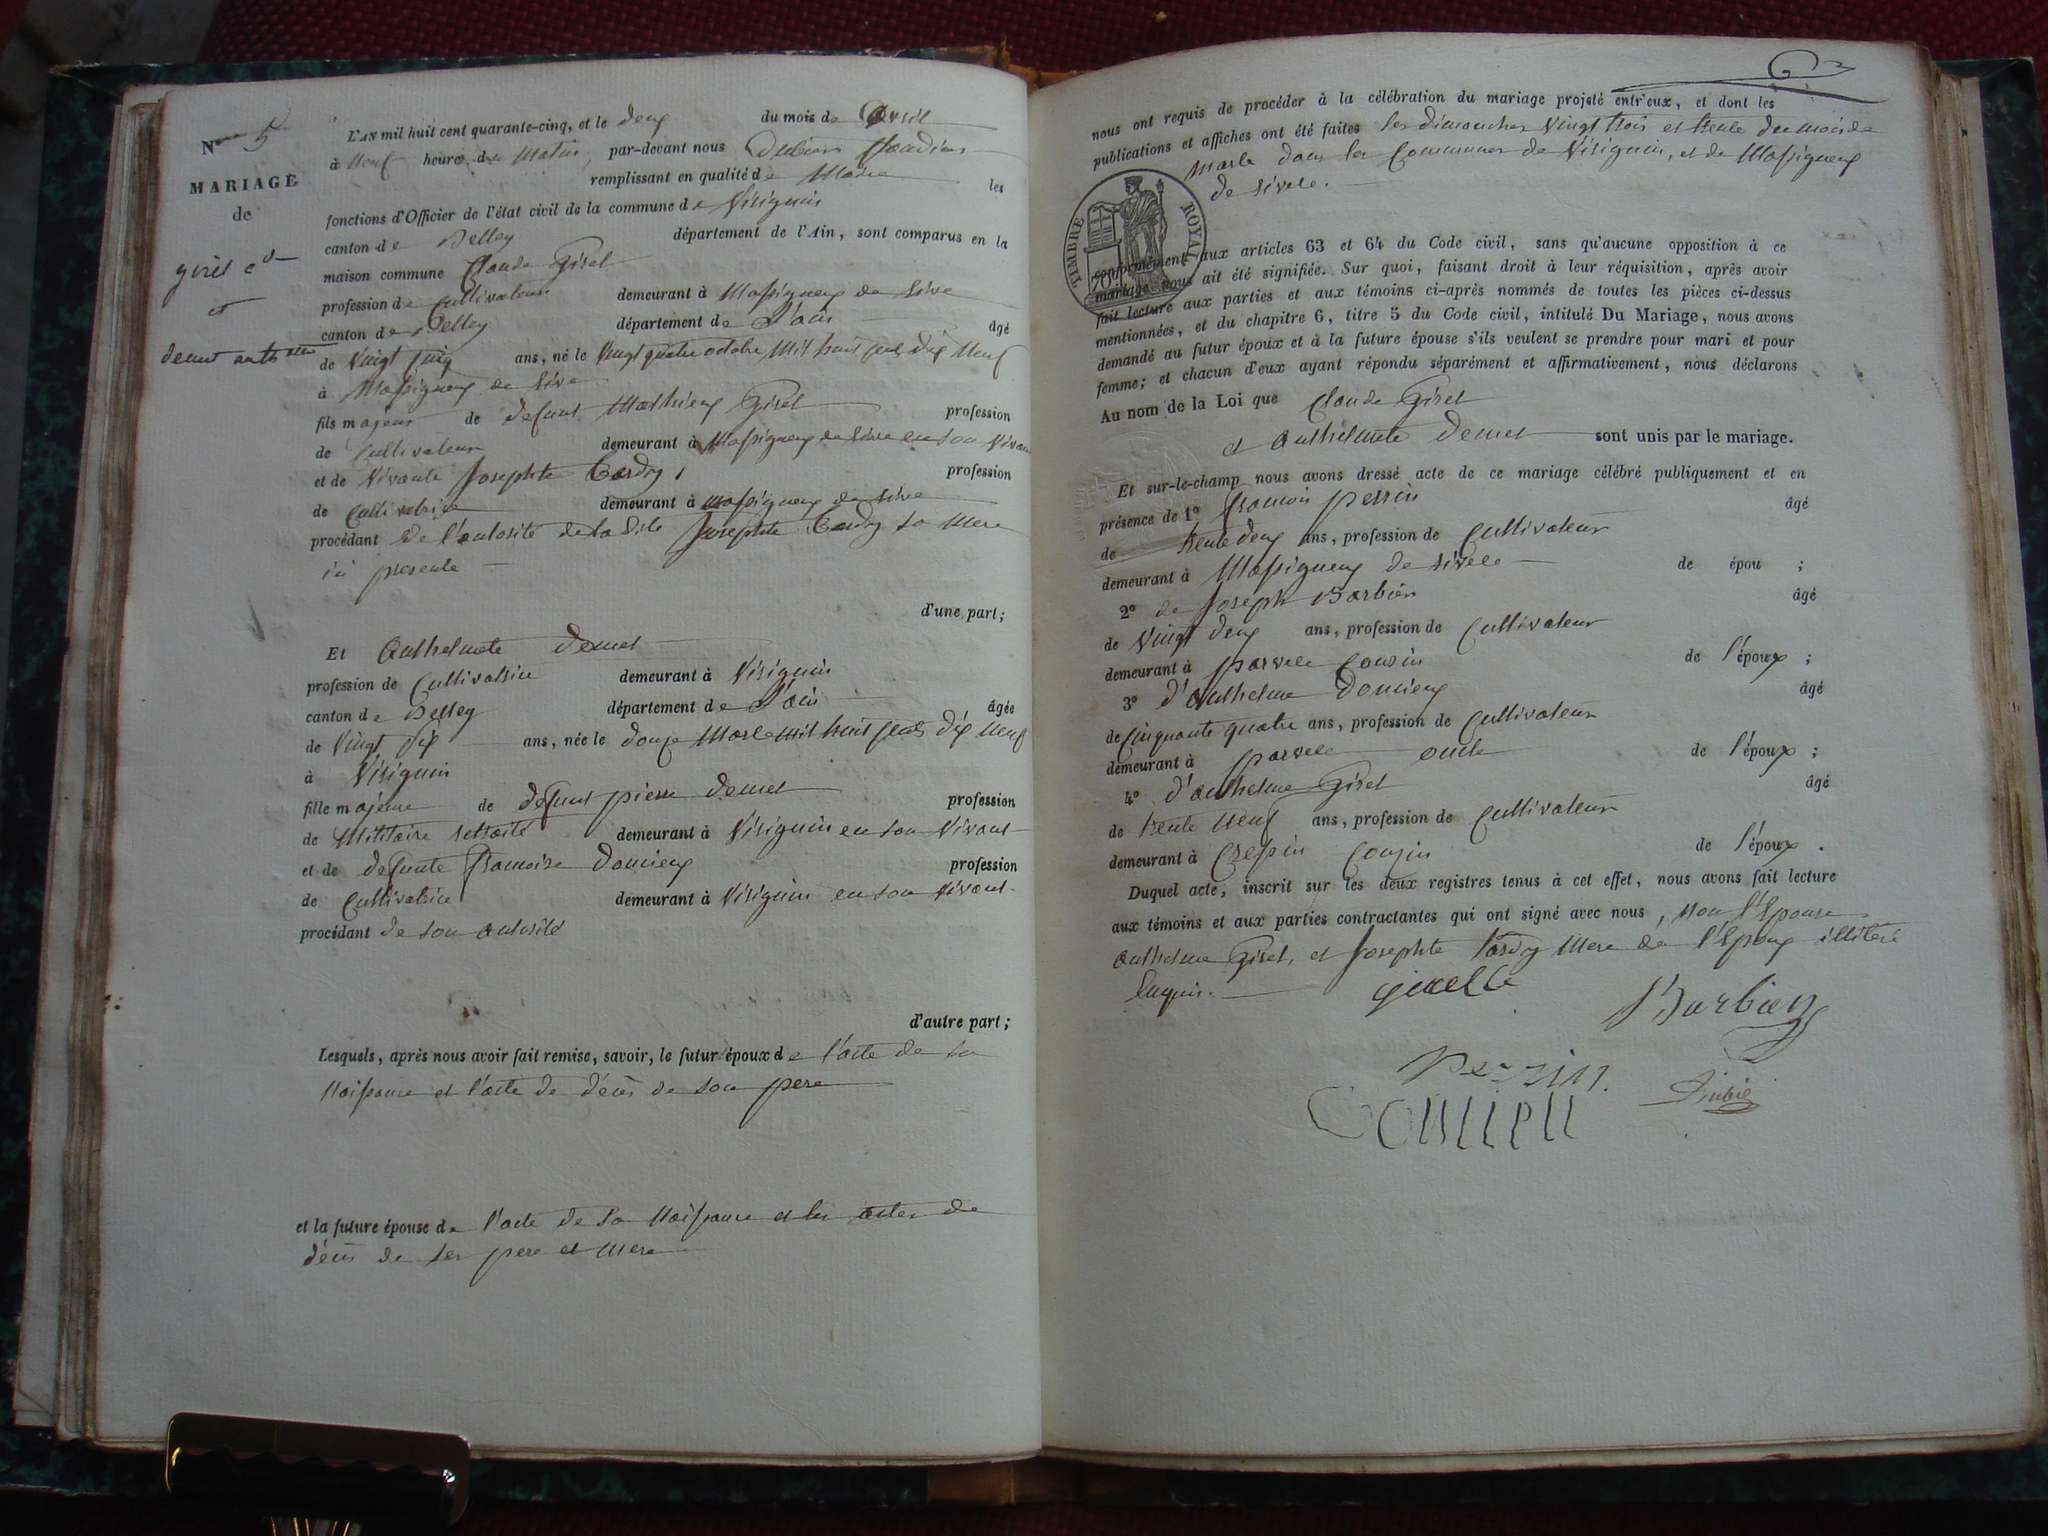 N° 5
MARIAGE
de
giret cde
et
demet anthte
L'AN mil huit cent quarante-cinq, et le deux du mois de Avril
à Neuf heures du Matin, par-devant nous Claudius
remplissant en qualité de Maire les
fonctions d'Officier de l'état civil de la commune de Virignin
canton de Belley département de l'Ain, sont comparus en la
maison commune Claude Giret
profession de Cultivateur demeurant à Massigneux de Rive
canton de Belley département de L'ain âgé
de Vingt cinq ans, né le Vingt quatre octobre Mil huit cents dix Neuf
à Massigneux de Rive
fils majeur de defunt Mathieux Giret profession
de Cultivateur demeurant à Massigneux de Rive en son Vivant
et de Vivante Josephte Tardy, profession
de Cultivatrice demeurant à Massigneux de Rive
procédant de l'autorité de la dite Josephte Tardy sa Mere
ici presente
d'une part;
Et Anthelmete Demet
profession de Cultivatrice demeurant à Virignin
canton de Belley département de L'ain âgée
de Vingt six ans, née le douze Mars Mil huit cents dix Neuf
à Virignin
fille majeure de defunt pierre demet profession
de Militaire retraité demeurant à Virignin en son Vivant
et de defunte francoise Domieux profession
de Cultivatrice demeurant à Virignin en son vivant
procédant de son autorité
d'autre part;
Lesquels, après nous avoir fait remise, savoir, le futur époux de l'acte de sa
Naissance et l'acte de décès de son pere
et la future épouse de l'acte de sa Naissance et les actes de
décès de ses pere et Mere
nous ont requis de procéder à la célébration du mariage projeté entr'eux, et dont les
publications et affiches ont été faites les dimanches Vingt trois et trente du mois de
mars dans les Communes de Virignin, et de Massigneux
de rives.
TIMBRE ROYAL
70c
conformément aux articles 63 et 64 du Code civil, sans qu'aucune opposition à ce
mariage nous ait été signifiée. Sur quoi, faisant droit à leur réquisition, après avoir
fait lecture aux parties et aux témoins ci-après nommés de toutes les pièces ci-dessus
mentionnées, et du chapitre 6, titre 5 du Code civil, intitulé Du Mariage, nous avons
demandé au futur époux et à la future épouse s'ils veulent se prendre pour mari et pour
femme; et chacun d'eux ayant répondu séparément et affirmativement, nous déclarons
Au nom de la Loi que Claude Giret
et Anthelmete Demet sont unis par le mariage.
Et sur-le-champ nous avons dressé acte de ce mariage célébré publiquement et en
présence de 1° francois perrin âgé
de trente deux ans, profession de Cultivateur
demeurant à Massigneux de rives de épou ;
2° de Joseph Barbier âgé
de Vingt deux ans, profession de Cultivateur
demeurant à parves Cousin de l'époux ;
3° d'Anthelme Domieux âgé
de Cinquante quatre ans, profession de Cultivateur
demeurant à parves oncle de l'époux ;
4° d'anthelme Giret âgé
de trente Neuf ans, profession de Cultivateur
demeurant à Cressin Cousin de l'époux.
Duquel acte, inscrit sur les deux registres tenus à cet effet, nous avons fait lecture
aux témoins et aux parties contractantes qui ont signé avec nous, Non l'Epouse
Anthelme Giret, et Josephte Tardy Mere de l'Epoux illiteré
Enquis.
Barbier
Perrin